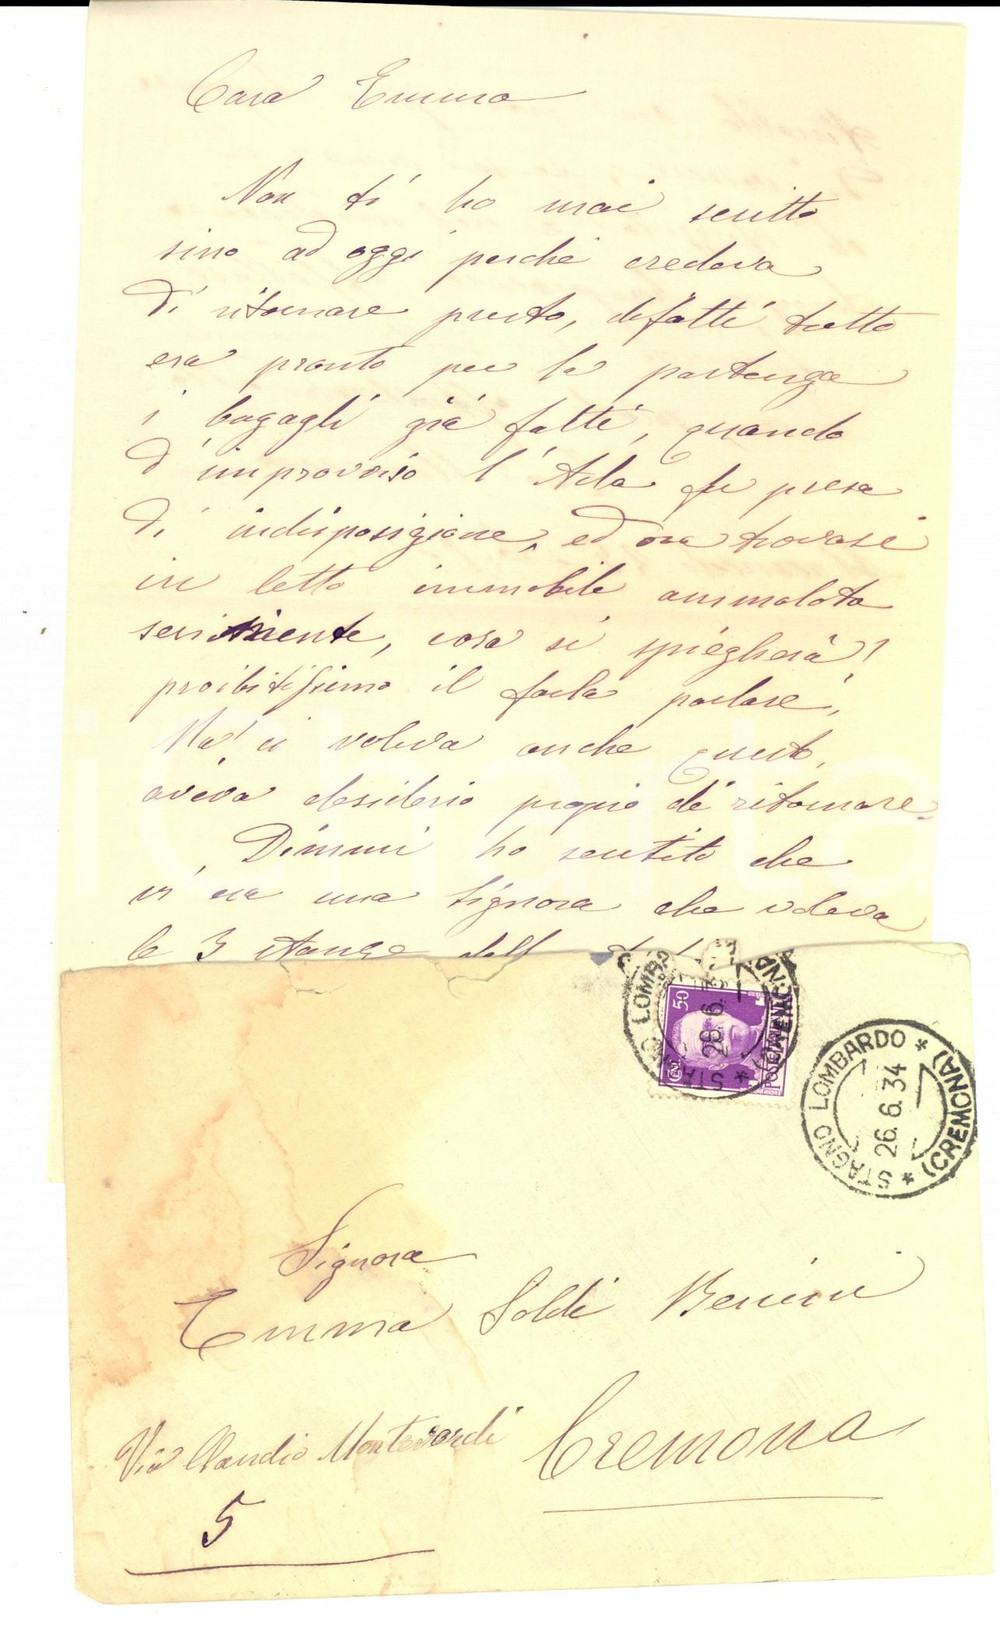 Cara Emma
Non ti ho mai scritto
sino ad oggi perchè credeva
di ritornare presto, difatti tutto
era pronto per la partenza
i bagagli già fatti, quando
d'improvviso l'Ada fu presa
di indisposizione, ed ora trovasi
in letto immobile ammalata
seriamente, cosa si spiegherà?
proibitissimo il farla parlare,
Ma ci voleva anche questo,
aveva desiderio proprio di ritornare
Dimmi ho sentito che
vi era una Signora che voleva
le 3 stanze
50
STAGNO LOMBARDO * (CREMONA) *
26.6.34
STAGNO LOMBARDO * (CREMONA) *
26.6.34
Signora
Emma Soldi Benini
Via Claudio Monteverdi
5
Cremona